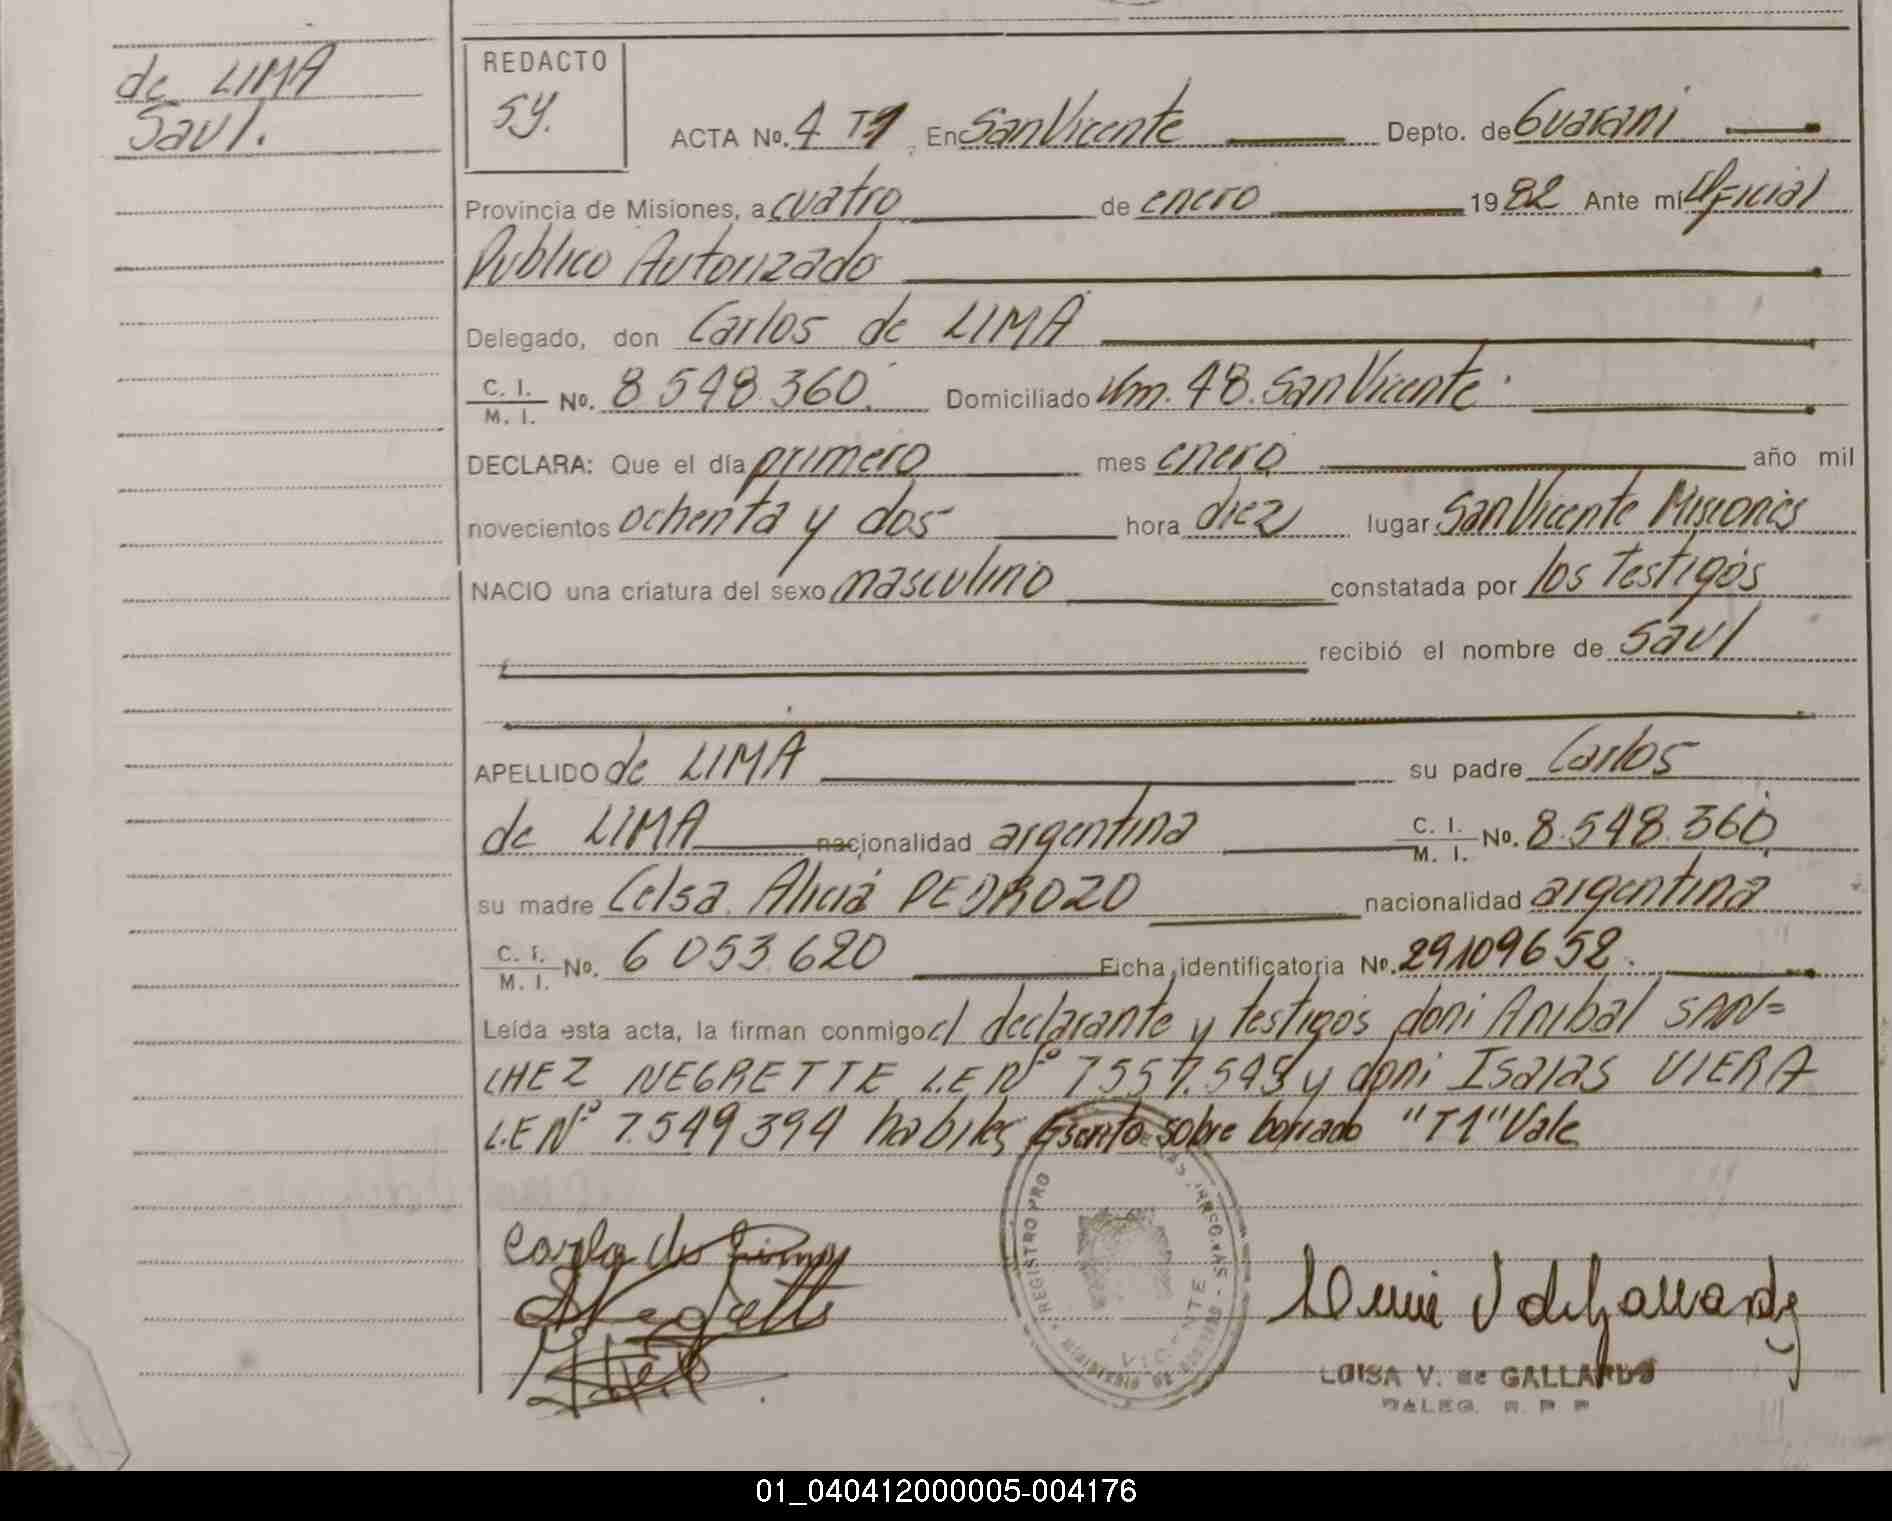 de LIMA
Saul.
REDACTO
Sy.
ACTA No. 4 T1 En San Vicente Depto. de Guarani
Provincia de Misiones, a cuatro de enero 1982 Ante mí Oficial
Publico Autorizado
Delegado, don Carlos de LIMA
C. I. / M. I. No. 8.548.360. Domiciliado Km. 48. San Vicente.
DECLARA: Que el día primero mes enero año mil
novecientos ochenta y dos hora diez lugar San Vicente Misiones
NACIO una criatura del sexo masculino constatada por los testigos
recibió el nombre de Saul
APELLIDO de LIMA su padre Carlos
de LIMA nacionalidad argentina C. I. / M. I. No. 8.548.360
su madre Celsa Alicia PEDROZO nacionalidad argentina
C. I. / M. I. No. 6 053.620 Ficha identificatoria No. 29109652.
Leída esta acta, la firman conmigo el declarante y testigos doni Anibal SAN=
CHEZ NEGRETTE L.E Nº 7557.549 y doni Isaias VIERA
L.E Nº 7.549 394 habiles Escrito sobre borrado "T1" Vale
Carlo de Lima
REGISTRO PRO
VICENTE
LUISA V. de GALLARDO
DALEG. R. P. P.
01_040412000005-004176